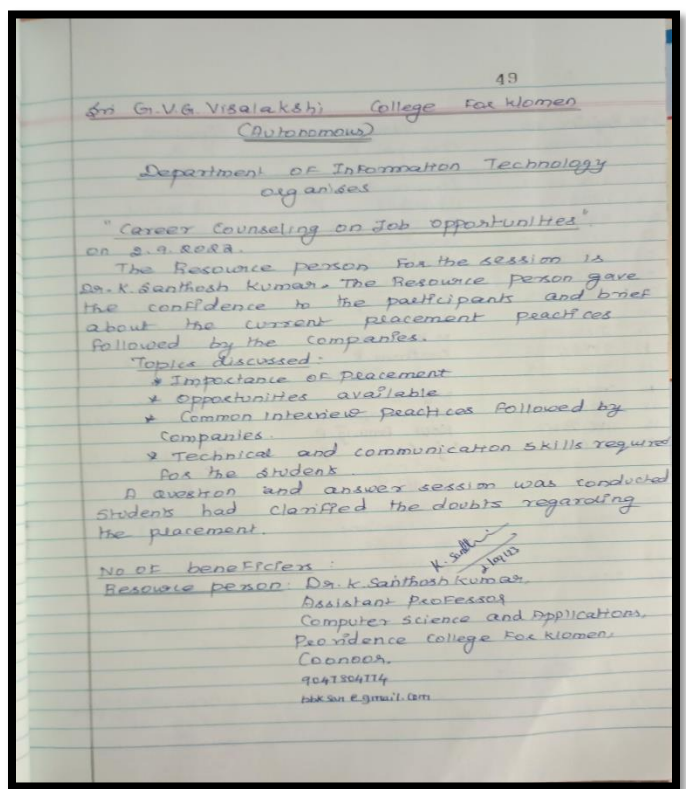 49
Sri G.V.G. Visalakshi College For Women
(Autonomous)
Department of Information Technology
organises
"Career Counseling on Job opportunities"
on 2.9.2022.
The Resource person for the session is
Dr. K. Santhosh Kumar. The Resource person gave
the confidence to the participants and brief
about the current placement practices
followed by the companies.
Topics discussed:
* Importance of placement
* Opportunities available
* Common Interview practices followed by
companies.
* Technical and communication skills required
for the student.
A question and answer session was conducted
students had clarified the doubts regarding
the placement.
No of beneficiers :
Resource person: Dr. K. Santhosh Kumar,
Assistant Professor
Computer Science and Applications,
Providence College For Women,
Coonoor.